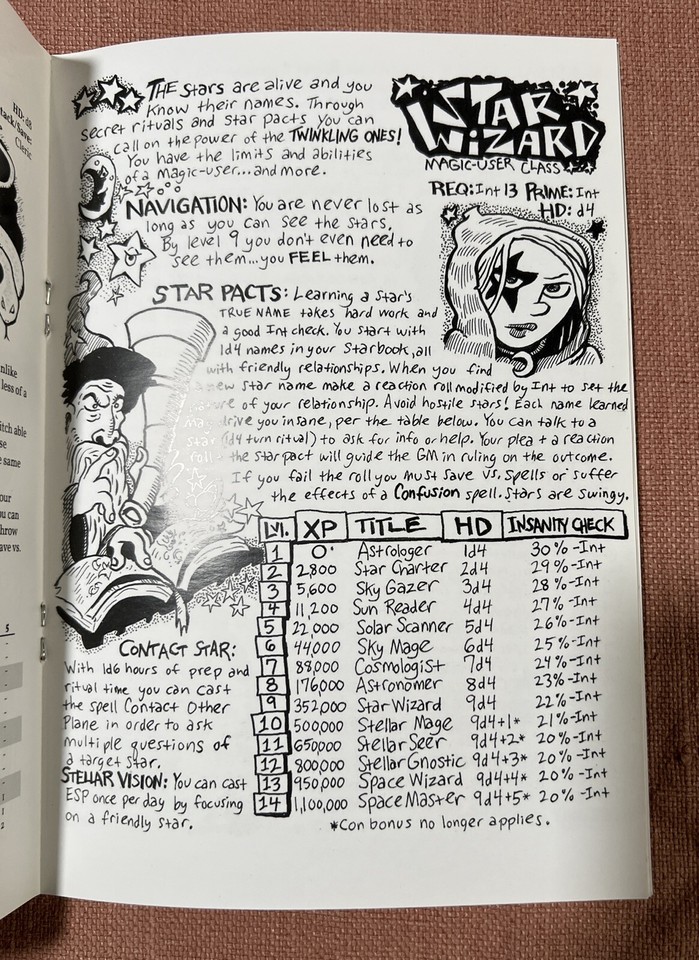 HD: d8
Attack/Save:
Cleric
unlike
less of a
itch able
se
e same
our
ou can
hrow
ave vs.
5
1
1
2
THE Stars are alive and you
Know their names. Through
secret rituals and star pacts you can
call on the power of the TWINKLING ONES!
You have the limits and abilities
of a magic-user...and more.
STAR
WIZARD
MAGIC-USER CLASS
REQ: Int 13 PRIME: Int
HD: d4
NAVIGATION: You are never lost as
long as you can see the stars.
By level 9 you don't even need to
see them...you FEEL them.
STAR PACTS: Learning a star's
TRUE NAME takes hard work and
a good Int check. You start with
1d4 names in your Starbook, all
with friendly relationships. When you find
new star name make a reaction roll modified by Int to set the
of your relationship. Avoid hostile stars! Each name learned
drive you insane, per the table below. You can talk to a
star (1d4 turn ritual) to ask for info or help. Your plea + a reaction
roll + the star pact will guide the GM in ruling on the outcome.
If you fail the roll you must save vs. spells or suffer
the effects of a Confusion spell. Stars are swingy.
Lvl. XP TITLE HD INSANITY CHECK
1 0 Astrologer 1d4 30%-Int
2 2,800 Star Charter 2d4 29%-Int
3 5,600 Sky Gazer 3d4 28%-Int
4 11,200 Sun Reader 4d4 27%-Int
5 22,000 Solar Scanner 5d4 26%-Int
6 44,000 Sky Mage 6d4 25%-Int
7 88,000 Cosmologist 7d4 24%-Int
8 176,000 Astronomer 8d4 23%-Int
9 352,000 Star Wizard 9d4 22%-Int
10 500,000 Stellar Mage 9d4+1* 21%-Int
11 650,000 Stellar Seer 9d4+2* 20%-Int
12 800,000 Stellar Gnostic 9d4+3* 20%-Int
13 950,000 Space Wizard 9d4+4* 20%-Int
14 1,100,000 Space Master 9d4+5* 20%-Int
*Con bonus no longer applies.
CONTACT STAR:
With 1d6 hours of prep and
ritual time you can cast
the spell Contact Other
Plane in order to ask
multiple questions of
a target star.
STELLAR VISION: You can cast
ESP once per day by focusing
on a friendly star.